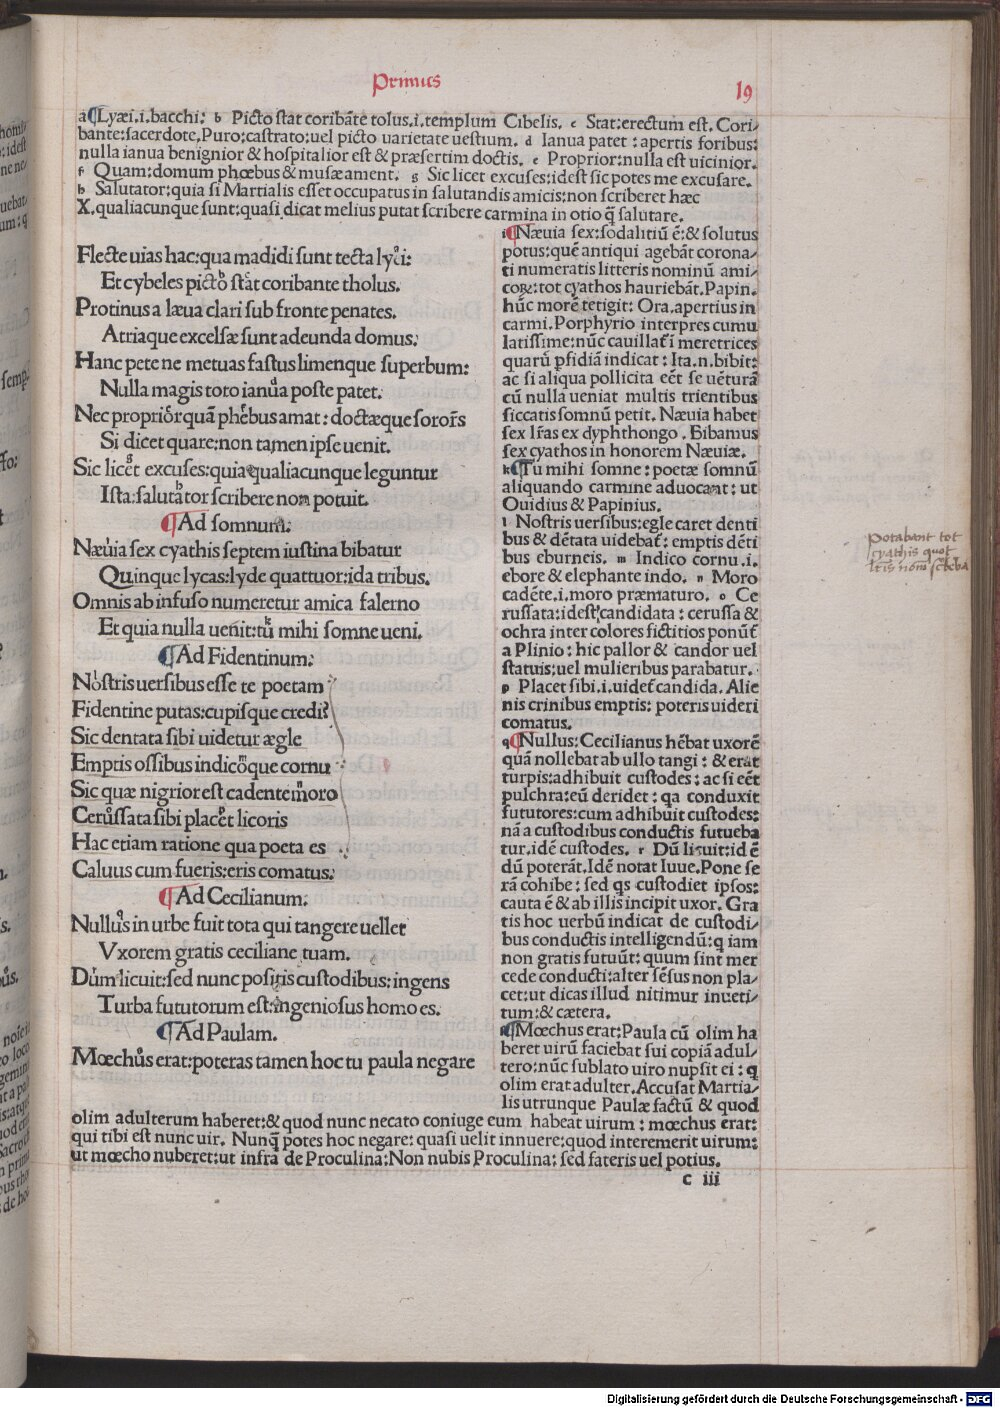 Primus
19
a ¶Lyæi.i.bacchi: b Picto stat coribāte tolus.i.templum Cibelis. c Stat:erectum est. Cori/
bante:sacerdote. Puro:castrato:uel picto uarietate uestium. d Ianua patet: apertis foribus:
nulla ianua benignior & hospitalior est & præsertim doctis. e Proprior:nulla est uicinior.
f Quam:domum phœbus & musæ ament. g Sic licet excuses:idest sic potes me excusare.
h Salutator:quia si Martialis esset occupatus in salutandis amicis:non scriberet hæc
X.qualiacunque sunt:quasi dicat melius putat scribere carmina in otio q̄ salutare.
Flecte uias hac:qua madidi sunt tecta lyæi:
Et cybeles picto stat coribante tholus.
Protinus a læua clari sub fronte penates.
Atriaque excelsæ sunt adeunda domus.
Hanc pete ne metuas fastus limenque superbum:
Nulla magis toto ianua poste patet.
Nec proprior:quā phebus amat: doctæque sorors
Si dicet quare:non tamen ipse uenit.
Sic licet excuses:quia qualiacunque leguntur
Ista:salutator scribere non potuit.
¶Ad somnum:
Næuia sex cyathis septem iustina bibatur
Quinque lycas:lyde quattuor:ida tribus.
Omnis ab infuso numeretur amica falerno
Et quia nulla uenit:tu mihi somne ueni.
¶Ad Fidentinum:
Nostris uersibus esse te poetam
Fidentine putas:cupisque credi?
Sic dentata sibi uidetur ægle
Emptis ossibus indicoque cornu
Sic quæ nigrior est cadente moro
Cerussata sibi placet licoris
Hac etiam ratione qua poeta es
Caluus cum fueris:eris comatus.
¶Ad Cecilianum.
Nullus in urbe fuit tota qui tangere uellet
Vxorem gratis ceciliane tuam.
Dum licuit:sed nunc positis custodibus:ingens
Turba fututorum est:ingeniosus homo es.
¶Ad Paulam.
Mœchus erat:poteras tamen hoc tu paula negare
i ¶Næuia sex:sodalitiū ē:& solutus
potus:quē antiqui agebāt corona/
ti numeratis litteris nominū ami/
coꝝ:tot cyathos hauriebāt. Papin.
hūc morē tetigit: Ora.apertius in
carmi.Porphyrio interpres cumu
latissime:nūc cauillat̄ i meretrices
quarū ꝑfidiā indicat: Ita.n.bibit:
ac si aliqua pollicita eēt se uēturā
cū nulla ueniat multis trientibus
siccatis somnū petit. Næuia habet
sex lr̄as ex dyphthongo. Bibamus
sex cyathos in honorem Næuiæ.
k ¶Tu mihi somne: poetæ somnū
aliquando carmine aduocant: ut
Ouidius & Papinius.
l Nostris uersibus:egle caret denti
bus & dētata uidebat̄: emptis dēti
bus eburneis. m Indico cornu.i.
ebore & elephante indo. n Moro
cadēte.i.moro præmaturo. o Ce
russata:idest candidata: cerussa &
ochra inter colores fictitios ponūt̄
a Plinio: hic pallor & candor uel
statuis:uel mulieribus parabatur.
p Placet sibi.i.uidet̄ candida. Alie
nis crinibus emptis: poteris uideri
comatus.
q ¶Nullus:Cecilianus hēbat uxorē
quā nollebat ab ullo tangi: & erat
turpis:adhibuit custodes: ac si eēt
pulchra:eū deridet: qa conduxit
fututores:cum adhibuit custodes:
nā a custodibus conductis futueba
tur.idē custodes. r Dū licuit:id ē
dū poterāt. Idē notat Iuue.Pone se
rā cohibe: sed qs custodiet ipsos:
cauta ē & ab illis incipit uxor. Gra
tis hoc uerbū indicat de custodi/
bus conductis intelligendū:q iam
non gratis futuūt: quum sint mer
cede conducti:alter sēsus non pla/
cet:ut dicas illud nitimur in ueti/
tum:& cætera.
¶Mœchus erat:Paula cū olim ha
beret uirū faciebat sui copiā adul/
tero:nūc sublato uiro nupsit ei: q
olim erat adulter. Accusat Martia/
lis utrunque Paulæ factū & quod
olim adulterum haberet:& quod nunc necato coniuge eum habeat uirum: mœchus erat:
qui tibi est nunc uir. Nunq̄ potes hoc negare: quasi uelit innuere:quod interemerit uirum:
ut mœcho nuberet:ut infra de Proculina:Non nubis Proculina: sed fateris uel potius.
c iii
potabant tot
cyathis quot
Digitalisierung gefördert durch die Deutsche Forschungsgemeinschaft - DFG